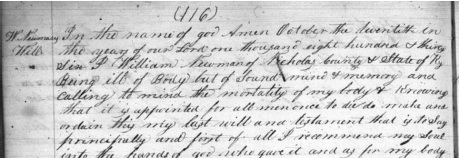 (116)
Wm Newmans
Will
In the name of god Amen October the twentieth in
the year of our Lord one thousand eight hundred & thirty
Six I William Newman of Nicholas County & State of Ky
Being ill of Body but of Sound mind & memory and
Calling to mind the mortality of my body & Knowing
that it is appointed for all men once to die do make and
ordain this my last will and testament that is to say
principally and first of all I recommend my Soul
into the hands of god who gave it and as for my body